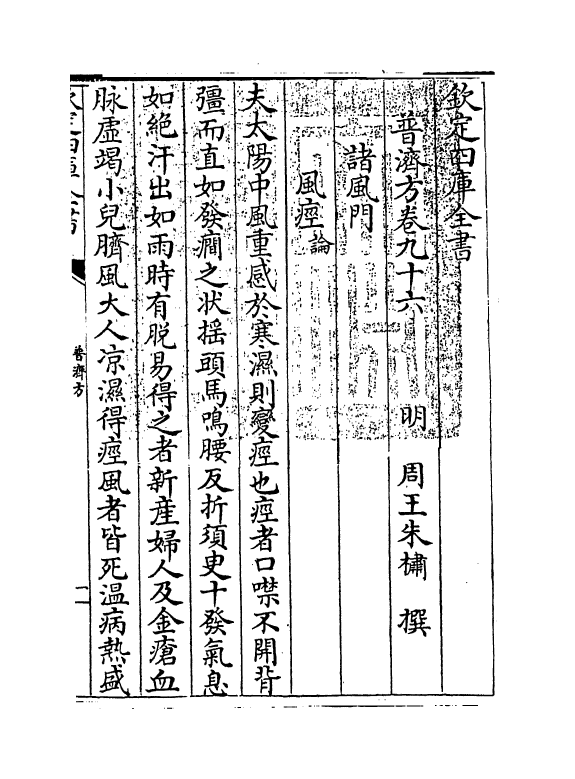 欽定四庫全書
普濟方卷九十六　明　周王朱橚　撰
諸風門
風痙論
夫太陽中風重感於寒濕則變痙也痙者口噤不開背
彊而直如發癇之狀揺頭馬鳴腰反折須臾十發氣息
如絶汗出如雨時有脱易得之者新産婦人及金瘡血
脉虚竭小兒臍風大人凉濕得痙風者皆死温病熱盛
欽定四庫全書
普濟方
一